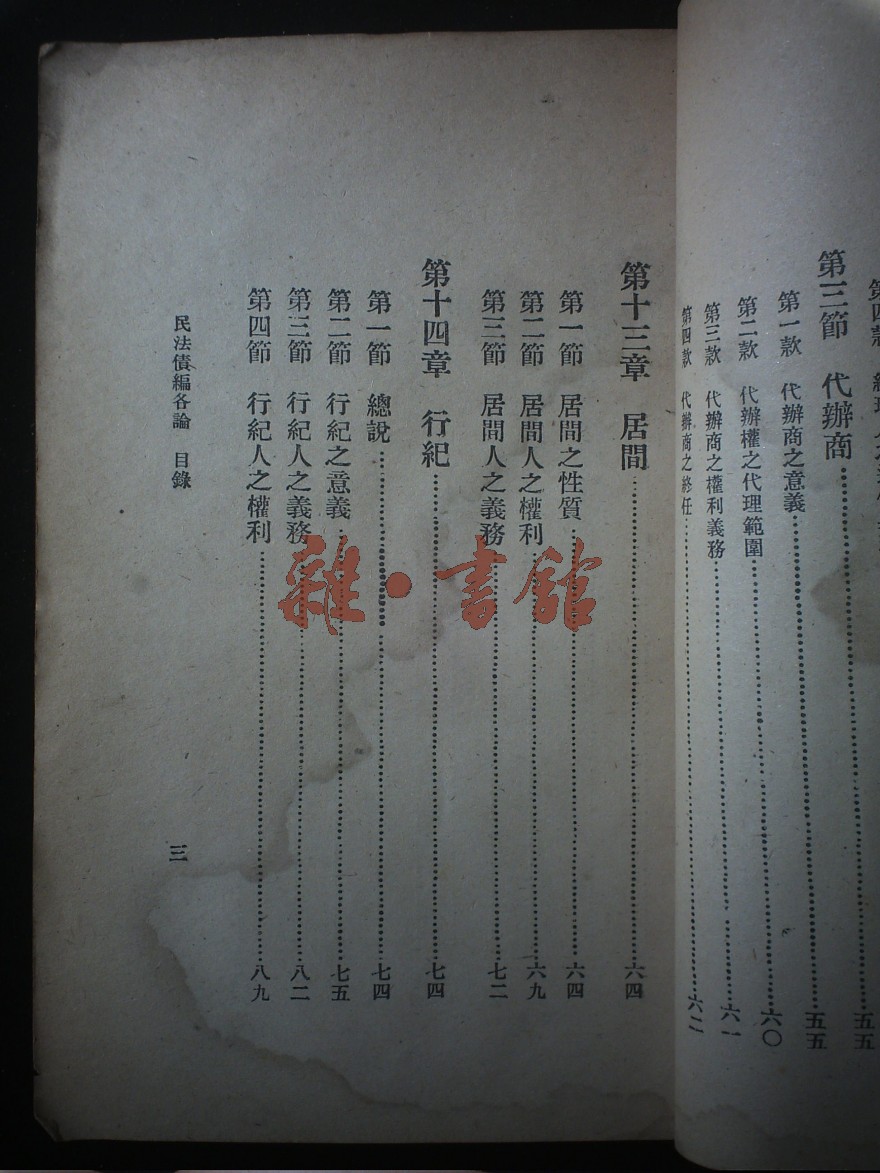 第三節　代辦商……五五
第一款　代辦商之意義……五五
第二款　代辦權之代理範圍……六〇
第三款　代辦商之權利義務……六一
第四款　代辦商之終任……六二
第十三章　居間……六四
第一節　居間之性質……六四
第二節　居間人之權利……六九
第三節　居間人之義務……七二
第十四章　行紀……七四
第一節　總說……七四
第二節　行紀之意義……七五
第三節　行紀人之義務……八二
第四節　行紀人之權利……八九
民法債編各論　目錄　三
雜·書館